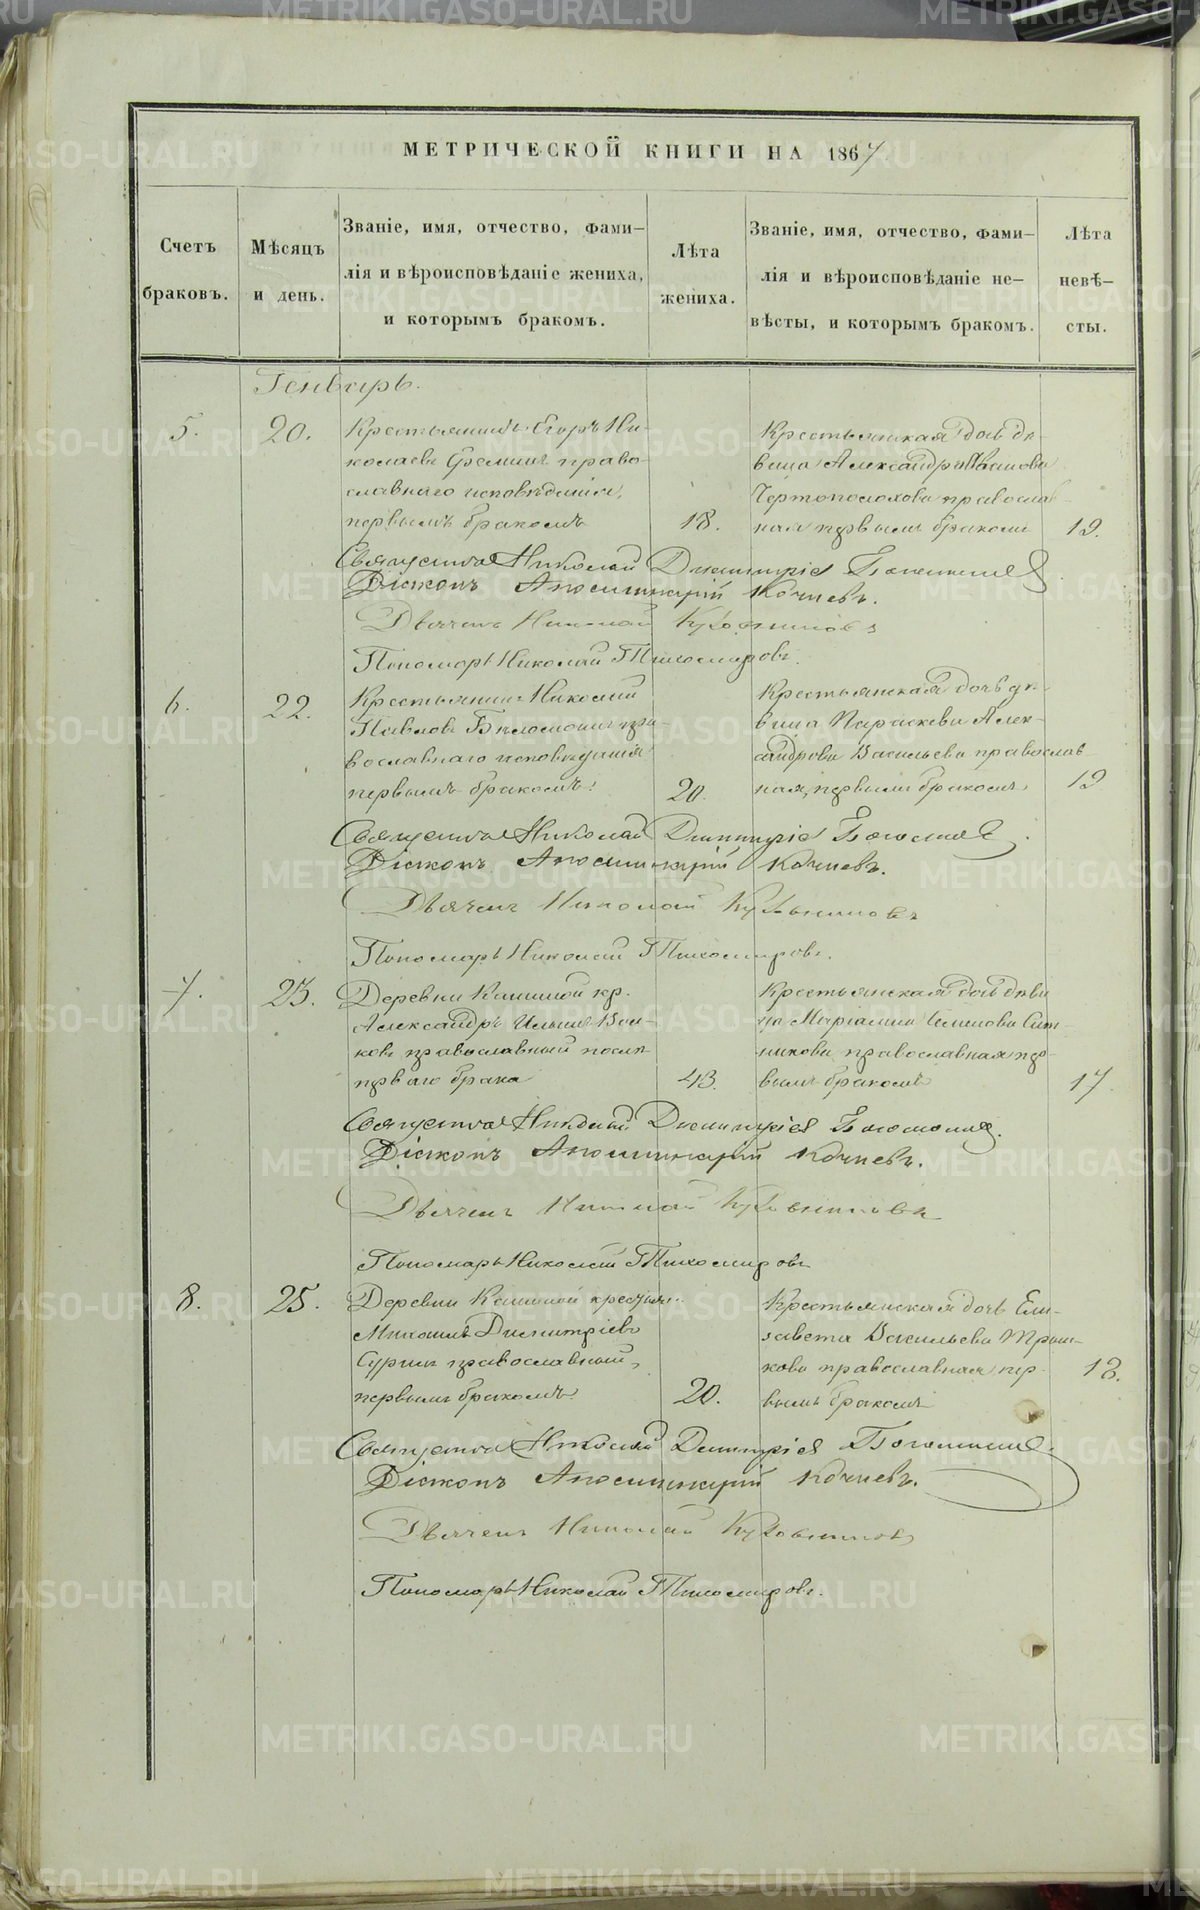 МЕТРИЧЕСКОЙ КНИГИ НА 1867
Счетъ браковъ.
Мѣсяцъ и день.
Званіе, имя, отчество, фами-
лія и вѣроисповѣданіе жениха,
и которымъ бракомъ.
Лѣта жениха.
Званіе, имя, отчество, фами-
лія и вѣроисповѣданіе не-
вѣсты, и которымъ бракомъ.
Лѣта невѣ-
сты.
Генварь.
5.
20.
Крестьянинъ Егоръ Ни-
колаевъ Ереминъ право-
славнаго исповѣданія,
первымъ бракомъ
18.
Крестьянская дочь дѣ-
вица Александра Иванова
Чертополохова православ-
ная первымъ бракомъ
19.
Священникъ Николай Димитріев
Діаконъ Аполлинарій Кочневъ.
Дьячекъ Николай
Пономарь Николай Тихомировъ.
6.
22.
Крестьянинъ Николай
Павловъ Бѣломоинъ пра-
вославнаго исповѣданія
первымъ бракомъ.
20.
Крестьянская дочь дѣ-
вица Параскева Алек-
сандрова Васильева православ-
ная, первымъ бракомъ
19
Священникъ Николай Димитріев
Діаконъ Аполлинарій Кочневъ.
Дьячекъ Николай
Пономарь Николай Тихомировъ.
7.
23.
Деревни Кашиной кр.
Александръ Ильинъ Вол-
ковъ православный послѣ
перваго брака
43.
Крестьянская дочь дѣви-
ца Маріамна Семенова Сит-
никова православная пер-
вымъ бракомъ
17.
Священникъ Николай Димитріев
Діаконъ Аполлинарій Кочневъ.
Дьячекъ Николай
Пономарь Николай Тихомировъ
8.
25.
Деревни Кашиной крестьян.
Михаилъ Димитріевъ
Суринъ православный,
первымъ бракомъ
20.
Крестьянская дочь Ели-
завета Васильева Трош-
кова православная пер-
вымъ бракомъ
18.
Священникъ Николай Димитріев
Діаконъ Аполлинарій Кочневъ.
Дьячекъ Николай
Пономарь Николай Тихомировъ.
METRIKI.GASO-URAL.RU